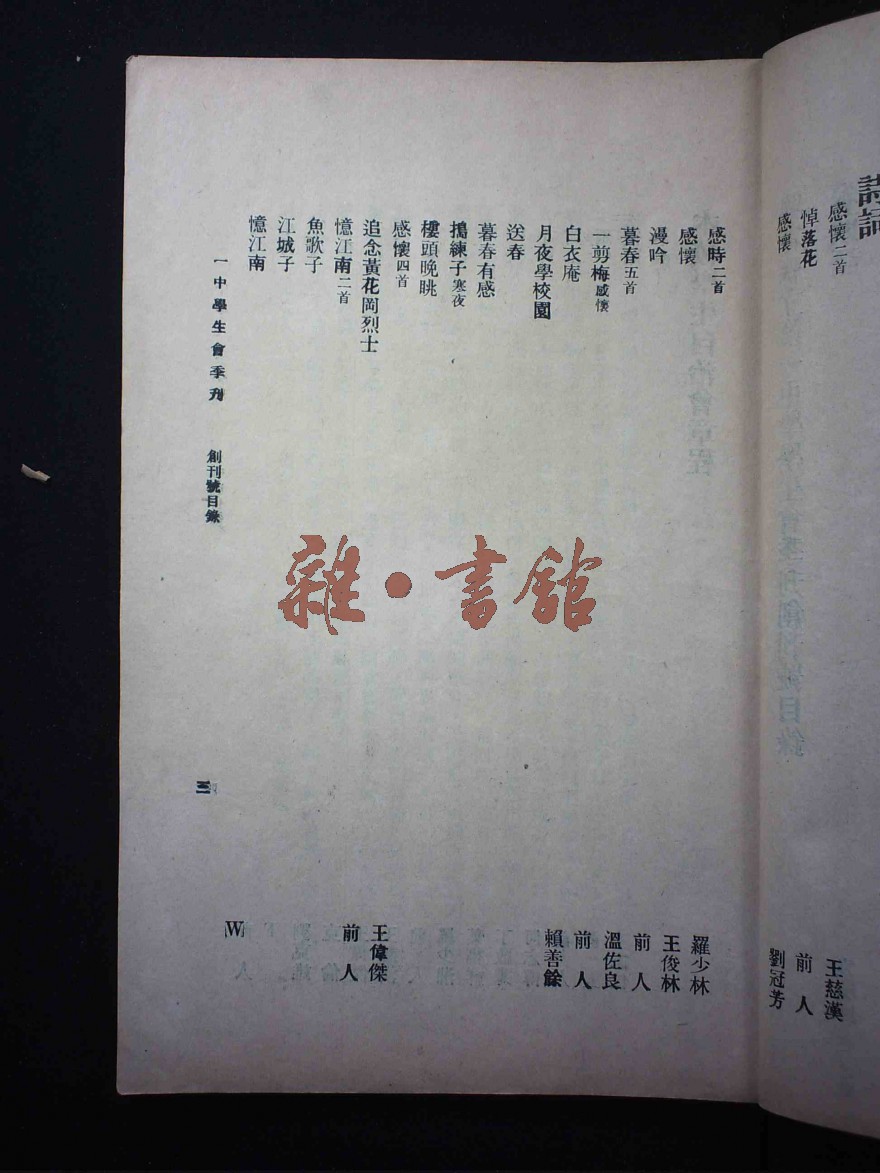 詩詞
感懷二首 王慈漢
悼落花 前人
感懷 劉冠芳
感時二首 羅少林
感懷 王俊林
漫吟 前人
暮春五首 溫佐良
一剪梅感懷 前人
白衣庵 賴善餘
月夜學校園
送春
暮春有感
搗練子寒夜
樓頭晚眺
感懷四首 王偉傑
追念黃花岡烈士 前人
憶江南二首
魚歌子
江城子
憶江南 W
一中學生會季刋 創刊號目錄
三
雜·書館